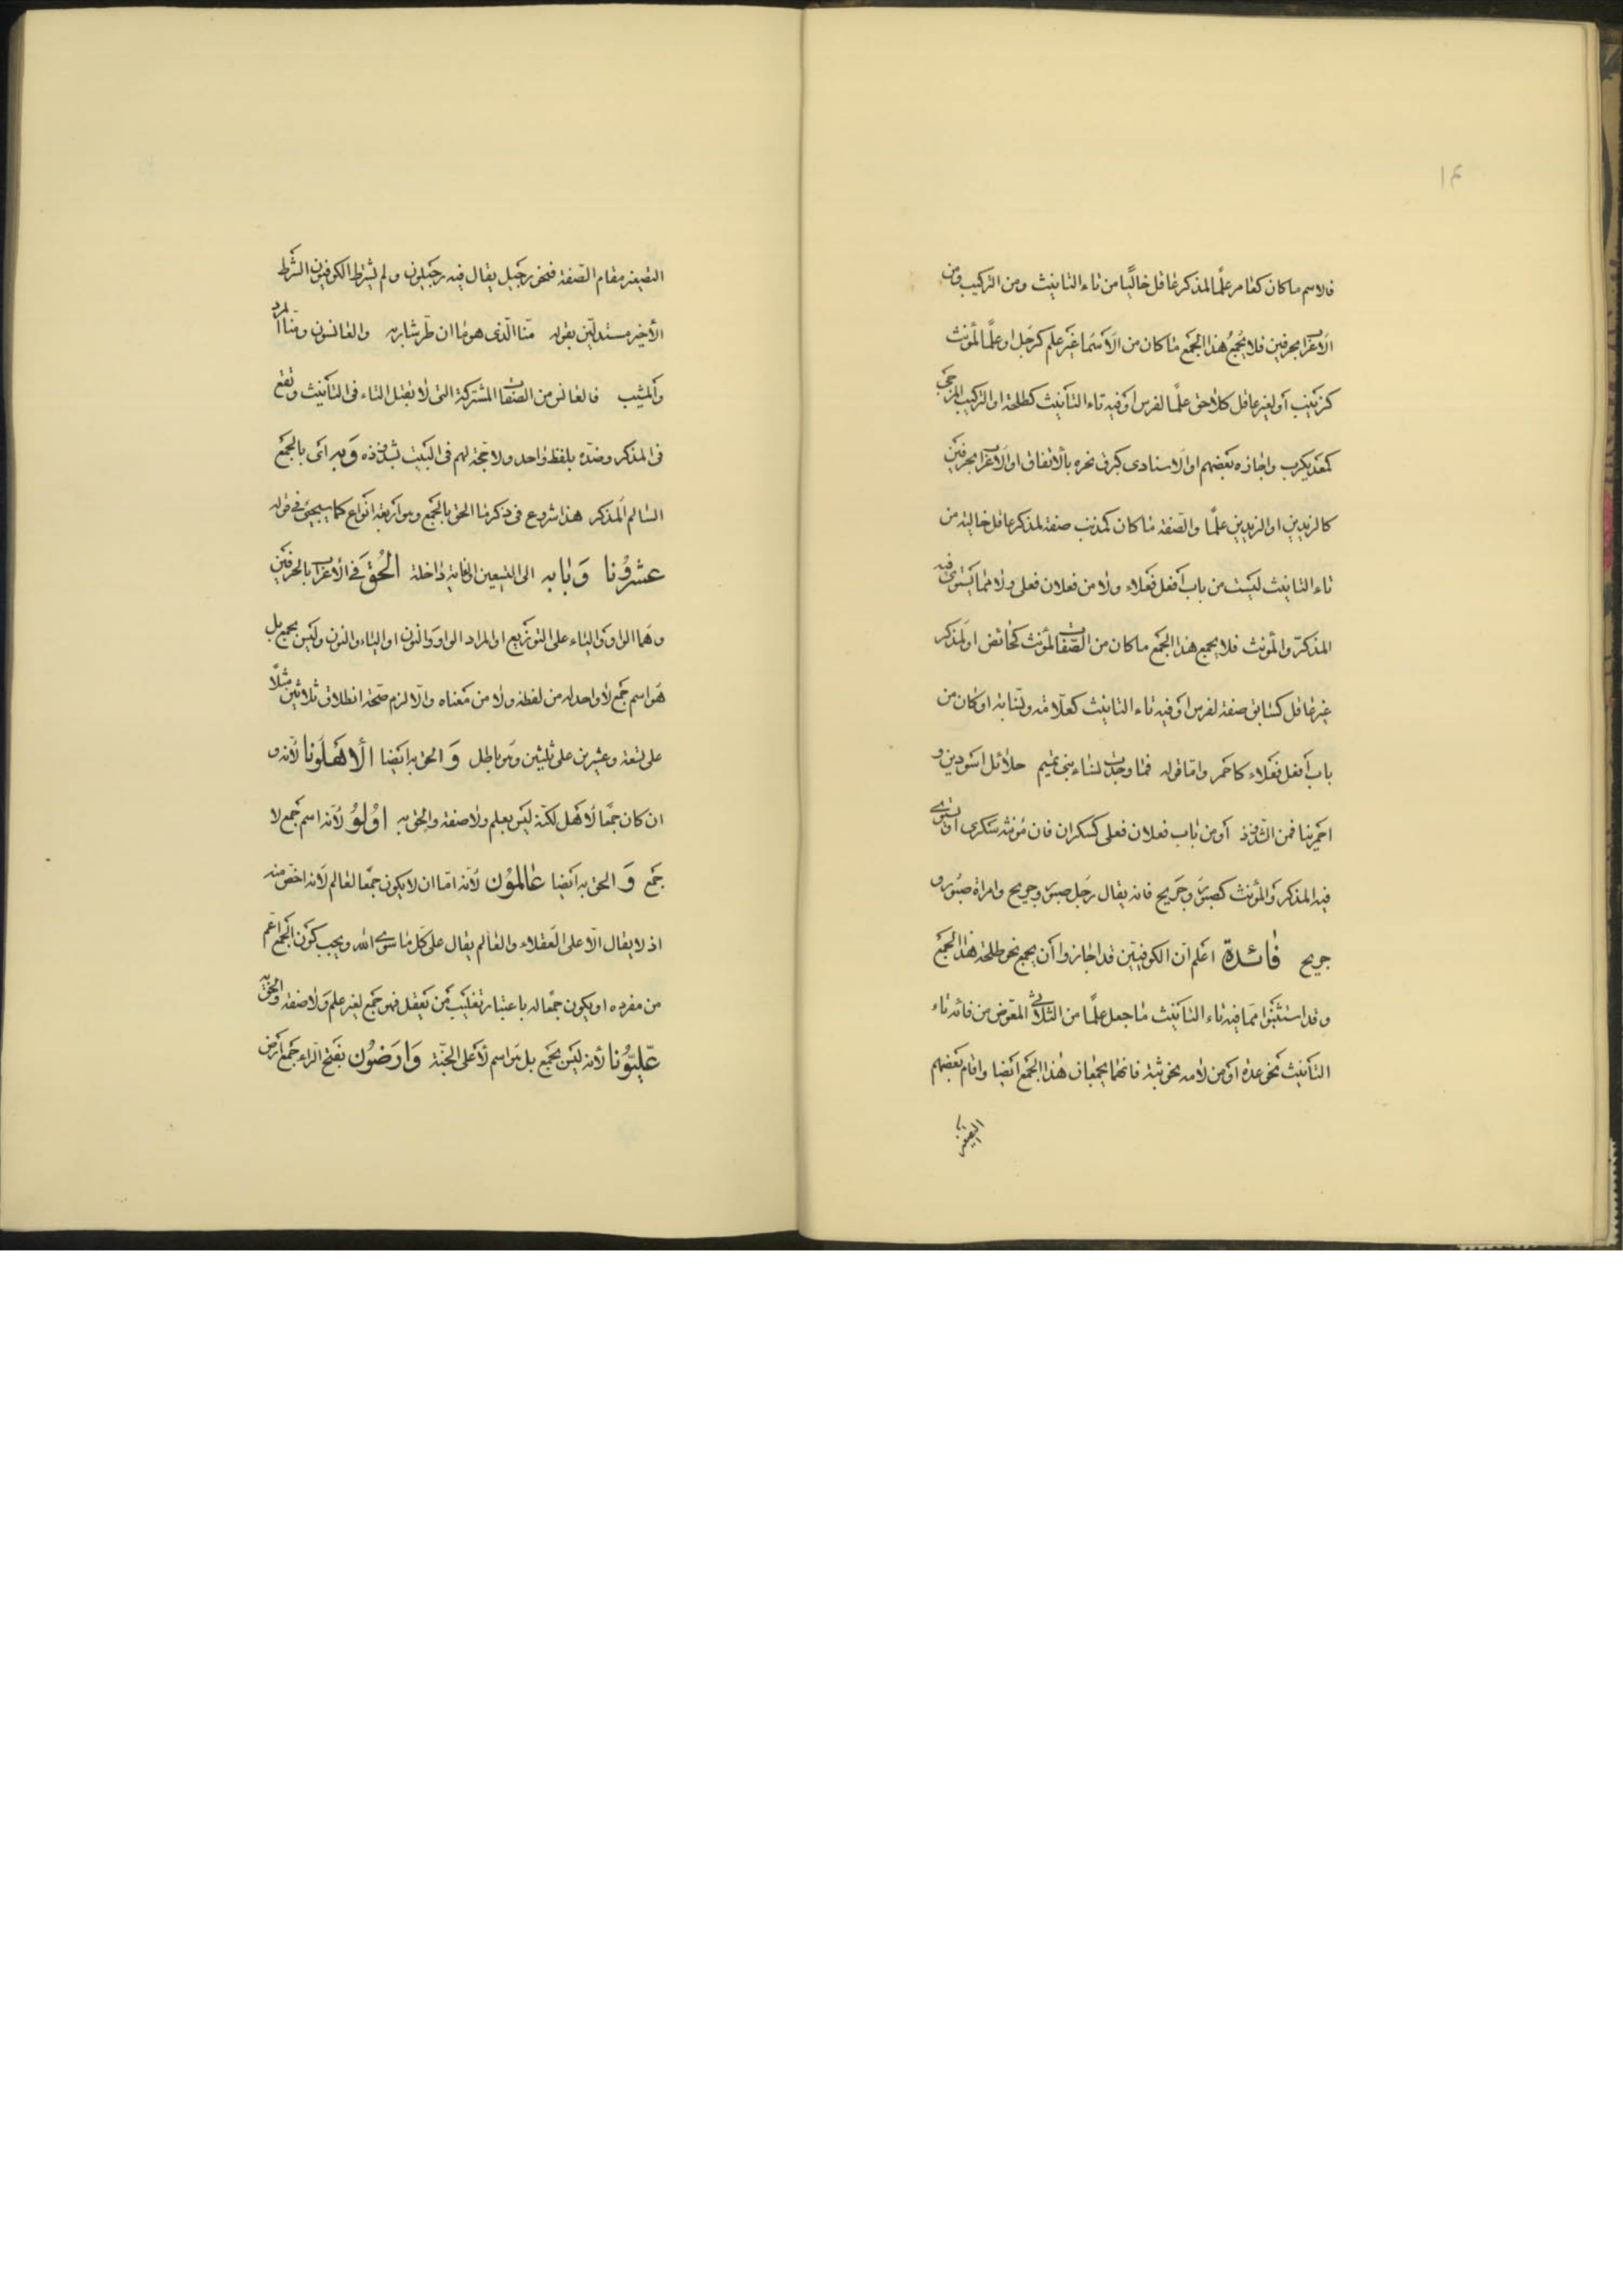 ١٤
فالاسم ما كان كعامر علمًا لمذكر عاقل خاليًا من تاء التانيث ومن التركيب ومن
الاعراب بحرفين فلا يجمع هذا الجمع ما كان من الاسما غير علم كرجل او علمًا لمؤنث
كزينب او لغير عاقل كلاحق علمًا لفرس او فيه تاء التانيث كطلحة او التركيب المزجى
كمعديكرب واجازه بعضهم او الاسنادى كبرق نحره بالاتفاق او الاعراب بحرفين
كالزيدين او الزيدين علمًا والصّفة ما كان كمذنب صفة لمذكر عاقل خالية من
تاء التانيث ليست من باب أفعل فعلاء ولا من فعلان فعلى ولا مما يستوى فيه
المذكر والمؤنث فلا يجمع هذا الجمع ما كان من الصّفات لمؤنث كحائض او لمذكر
غير عاقل كسابق صفة لفرس او فيه تاء التانيث كعلّامة ونسّابة او كان من
باب أفعل فعلاء كاحمر واما قوله فما وجدت نساء بنى تميم حلائل اسودين و
احمرينا فمن الشّذوذ أو من باب فعلان فعلى كسكران فان مؤنثه سكرى او يستوى
فيه المذكر والمؤنث كصبور وجريح فانه يقال رجل صبور وجريح وامراة صبور و
جريح فائدة اعلم ان الكوفيّين قد اجازوا أن يجمع نحو طلحة هذا الجمع
وقد استثنوا مما فيه تاء التانيث ما جعل علمًا من الثلاثى المعوّض من فائه تاء
التأنيث نحو عدة او من لامه نحو ثبة فانهما يجمعان هذا الجمع ايضا واقام بعضهم
التصغير
التصغير مقام الصّفة فنحو رجيل يقال فيه رجيلون ولم يشترط الكوفيون الشرط
الأخير مستدلّين بقوله منّا الّذى هو ما ان طرّ شاربه والعانسون ومنّا المرد
والشيب فالعانس من الصفات المشتركة التى لا تقبل التاء فى التأنيث وتقع
فى المذكر وضدّه بلفظ واحد ولا حجّة لهم فى البيت لشذوذه وَبه اى بالجمع
السّالم المذكر هذا شروع فى ذكر ما الحق بالجمع وهو اربعة انواع كما سيجيئ فى قوله
عشرُونا وَبابه الى التسعين والغاية داخلة اُلحُقَ فى الأعراب بالحرفين
وهما الواو والياء على التوزيع او المراد الواو والنون او الياء والنون وليس بجمع بل
هو اسم جمع لا واحد له من لفظه ولا من معناه والّا لزم صحّة انطلاق ثلاثين مثلًا
على تسعة وعشرين على ثلثين وهو باطل وَ الحق به ايضا الأهلُونا لأنّه و
ان كان جمعًا لأهل لكنّه ليس بعلم ولا صفة والحق به اُولوُ لأنه اسم جمع لا
جمع وَ الحق به ايضا عالموُن لأنّه امّا ان لا يكون جمعًا لعالم لأنه اخصّ منه
اذ لا يقال الّا على العقلاء والعالم يقال على كلّ ما سوى الله ويجب كون الجمع اعم
من مفرده او يكون جمعًا له باعتبار تغليب من يعقل فهو جمع لغير علم ولا صفة والحق به
علّيّوُنا لأنه ليس بجمع بل هو اسم لأعلى الجنّة وَارَضوُن بفتح الراء جمع ارض